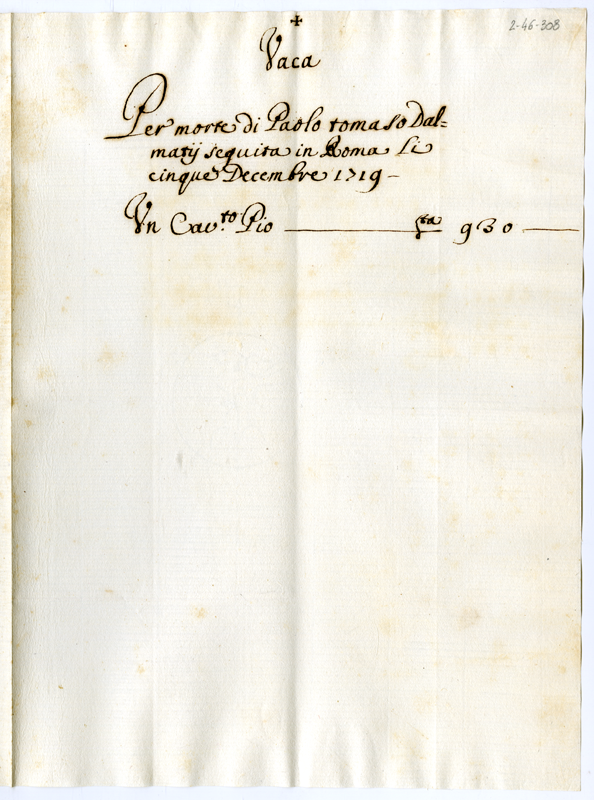 2-46-308
✝
Vaca
Per morte di Paolo tomaso Dal=
matij seguita in Roma li
cinque Decembre 1719 –
Un Cav.to Pio — — 930 —